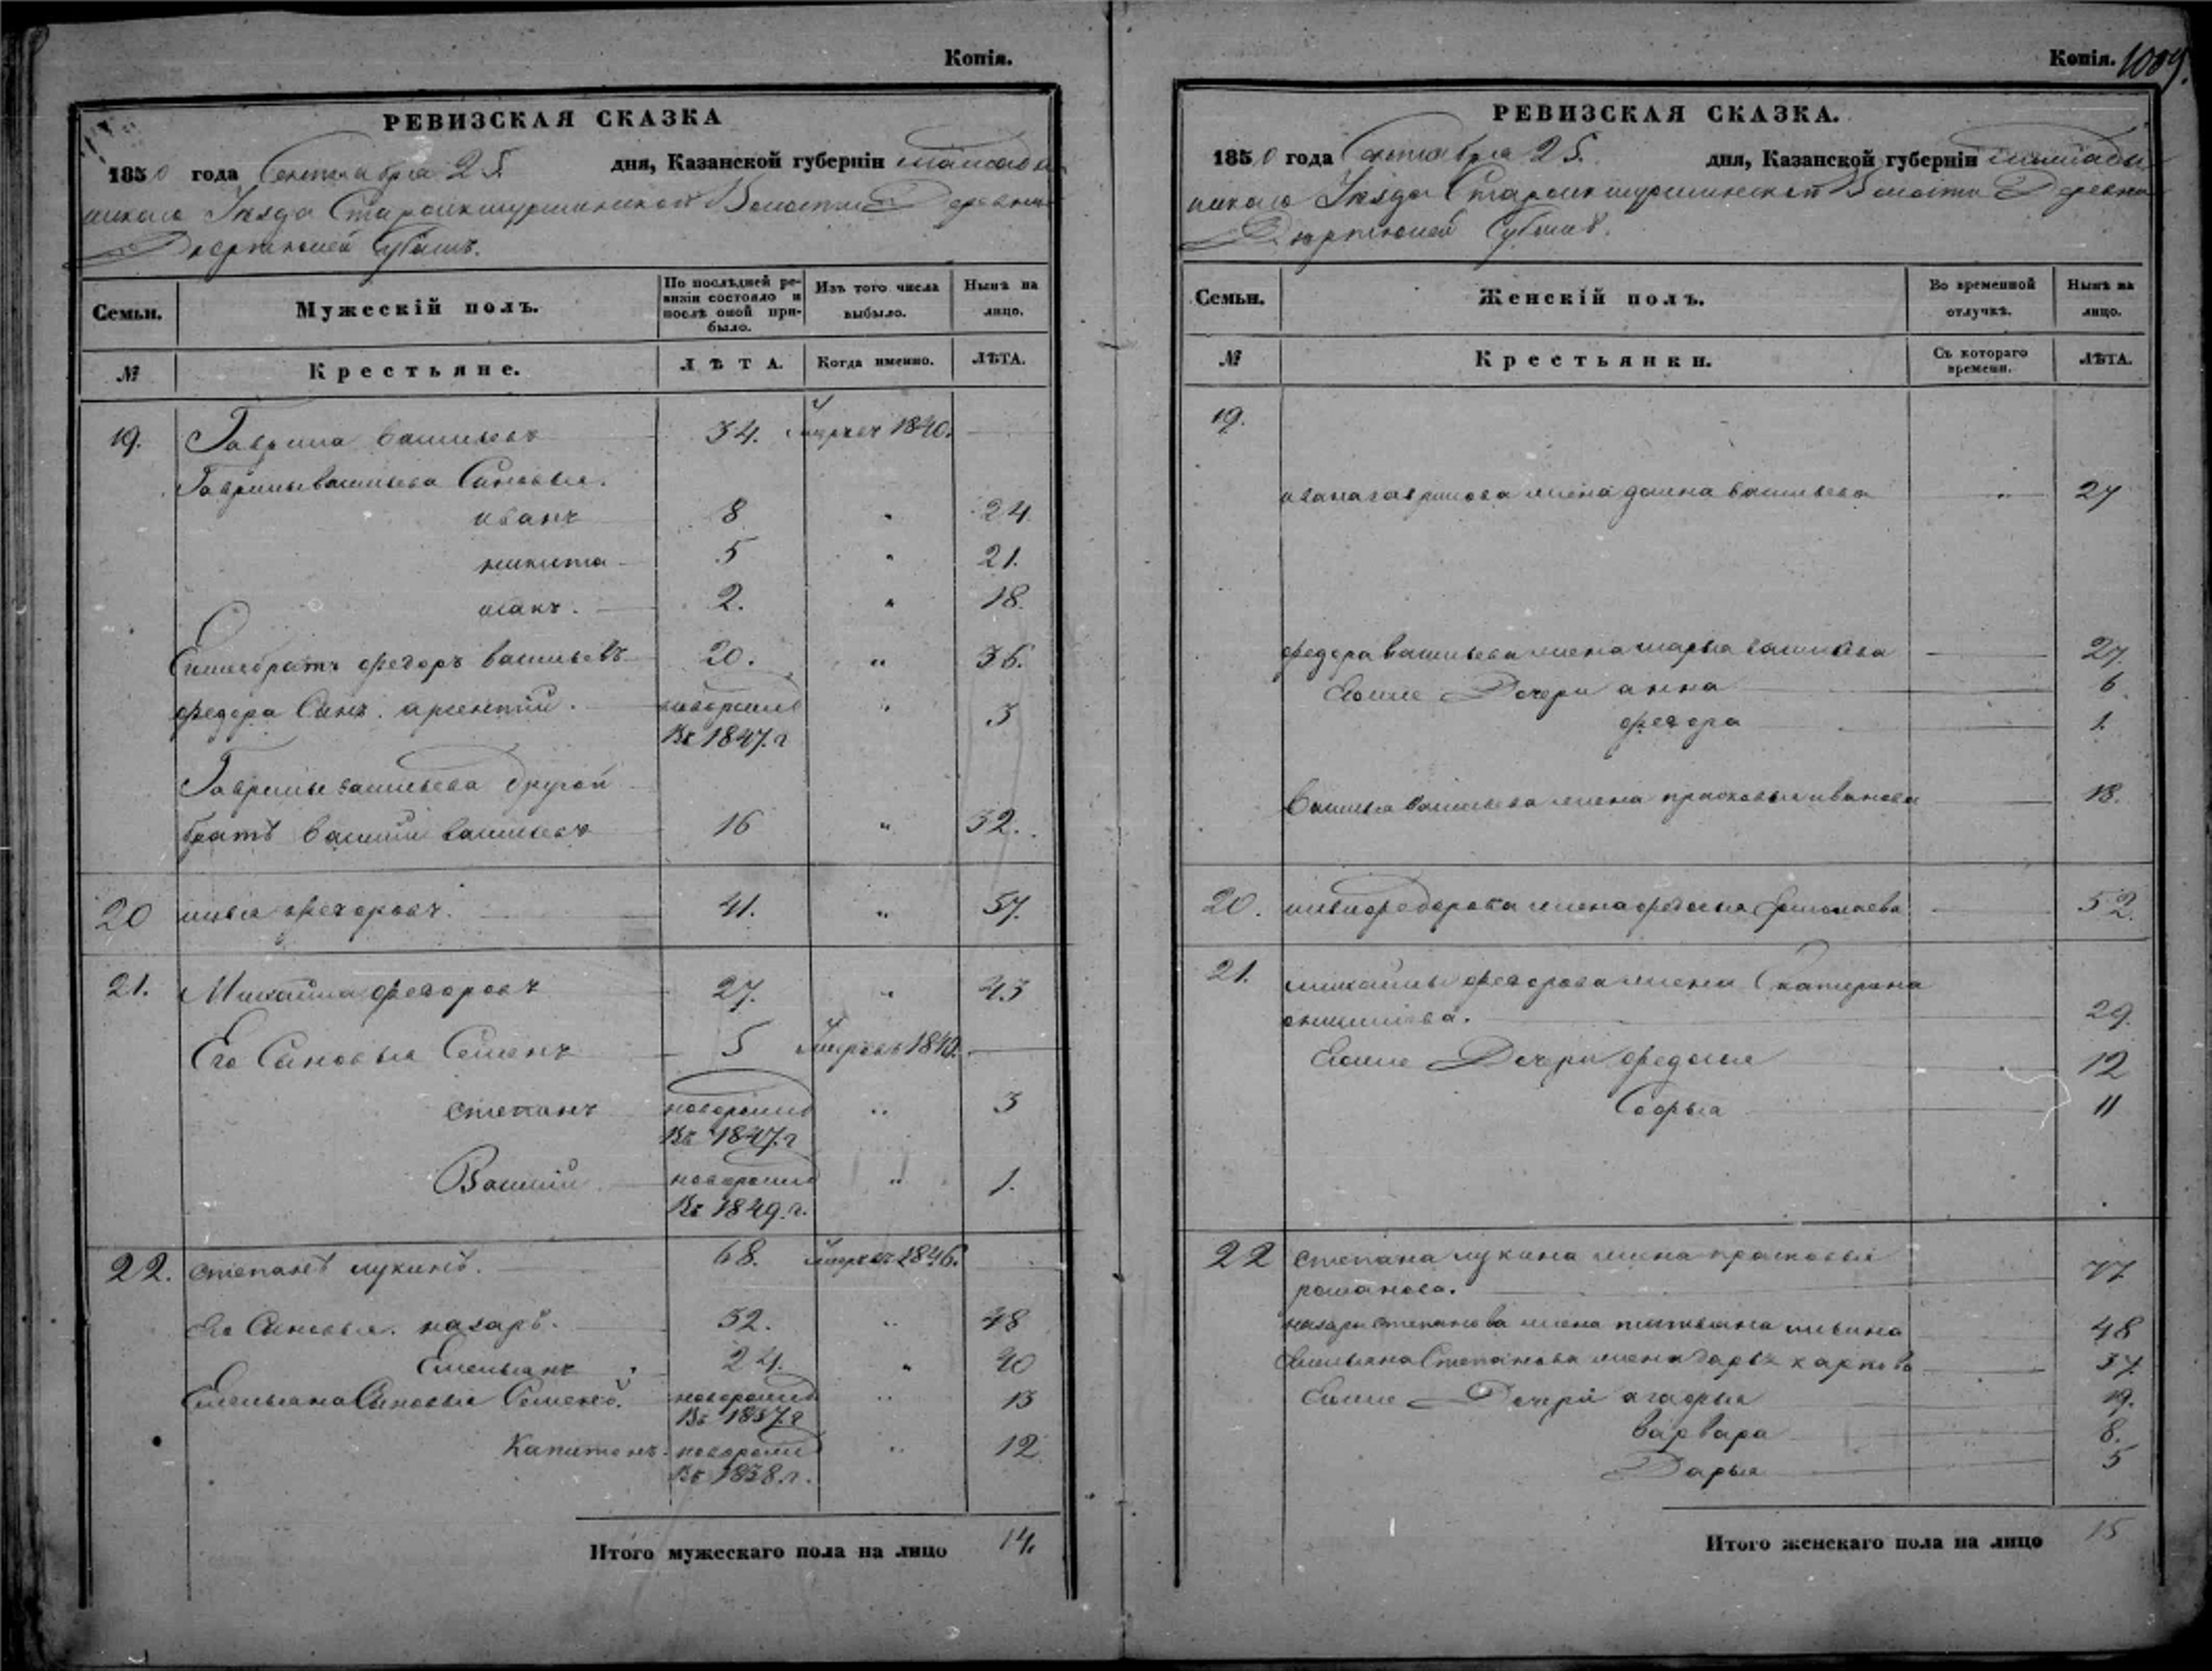 Копія.
РЕВИЗСКАЯ СКАЗКА
1850 года Сентября 25. дня, Казанской губерніи
Уѣзда Староикшурминской Волости Деревни
Субашъ.
Семьи. Мужескій полъ. По послѣдней ре-визіи состояло и послѣ оной при-было. Изъ того числа выбыло. Нынѣ на лицо.
№ Крестьяне. ЛѢТА. Когда именно. ЛѢТА.
19. Гаврила васильевъ 34. Умерѣ въ 1840.
Гаврилы васильева Сыновья.
иванъ 8 " 24
никита 5 " 21.
исакъ. 2. " 18.
Егоже братъ федоръ васильевъ 20. " 36.
федора Сынъ. арсентий. новорожд " 3
Въ 1847. г
Гаврилы васильева другой
братъ василий васильевъ 16 " 32.
20 илья федоровъ. 41. " 57.
21. Михайла федоровъ 27. " 43
Его Сыновья Семенъ 5 1840.
степанъ новорожд " 3
Въ 1847. г
Василий новорожд " 1.
Въ 1849. г.
22. степанъ лукинъ. 68. 1846.
Его Сыновья. назаръ. 32. " 48
Емельянъ 24. " 40
Емельяна Сыновья Семенъ. новорожд " 13
Въ 1837. г
Капитонъ новорожд " 12
Въ 1838. г.
Итого мужескаго пола на лицо 14.
Копія. 1009.
РЕВИЗСКАЯ СКАЗКА.
1850 года Сентября 25. дня, Казанской губерніи
Уѣзда Староикшурминской Волости Деревни
Субашъ.
Семьи. Женскій полъ. Во временной отлучкѣ. Нынѣ на лицо.
№ Крестьянки. Съ котораго времени. ЛѢТА.
19.
ивана гаврилова жена васильева " 27
федора васильева жена марья васильева 27.
Егоже Дочери анна 6.
федора 1.
Василья васильева жена прасковья иванова 18.
20. ильи федорова жена федосья Ермолаева 52.
21. михайлы федорова жена Екатерина
29.
Егоже Дочери федосья 12
Софья 11
22 степана лукина жена прасковья
романова. 77
назара степанова жена татьяна ильина 48
Емельяна Степанова жена дарья карпова 37.
Егоже Дочери агафья 19.
варвара 8.
Дарья 5
Итого женскаго пола на лицо 15